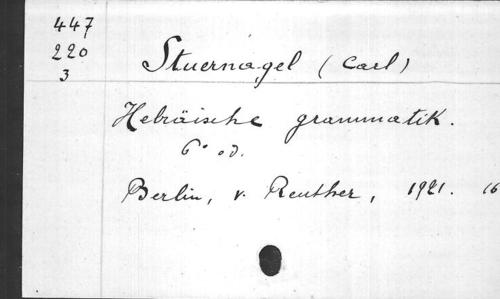 447
220
3
Stuernagel (Carl)
Hebräische grammatik.
6° ed.
Berlin, v. Reuther, 1921. 16